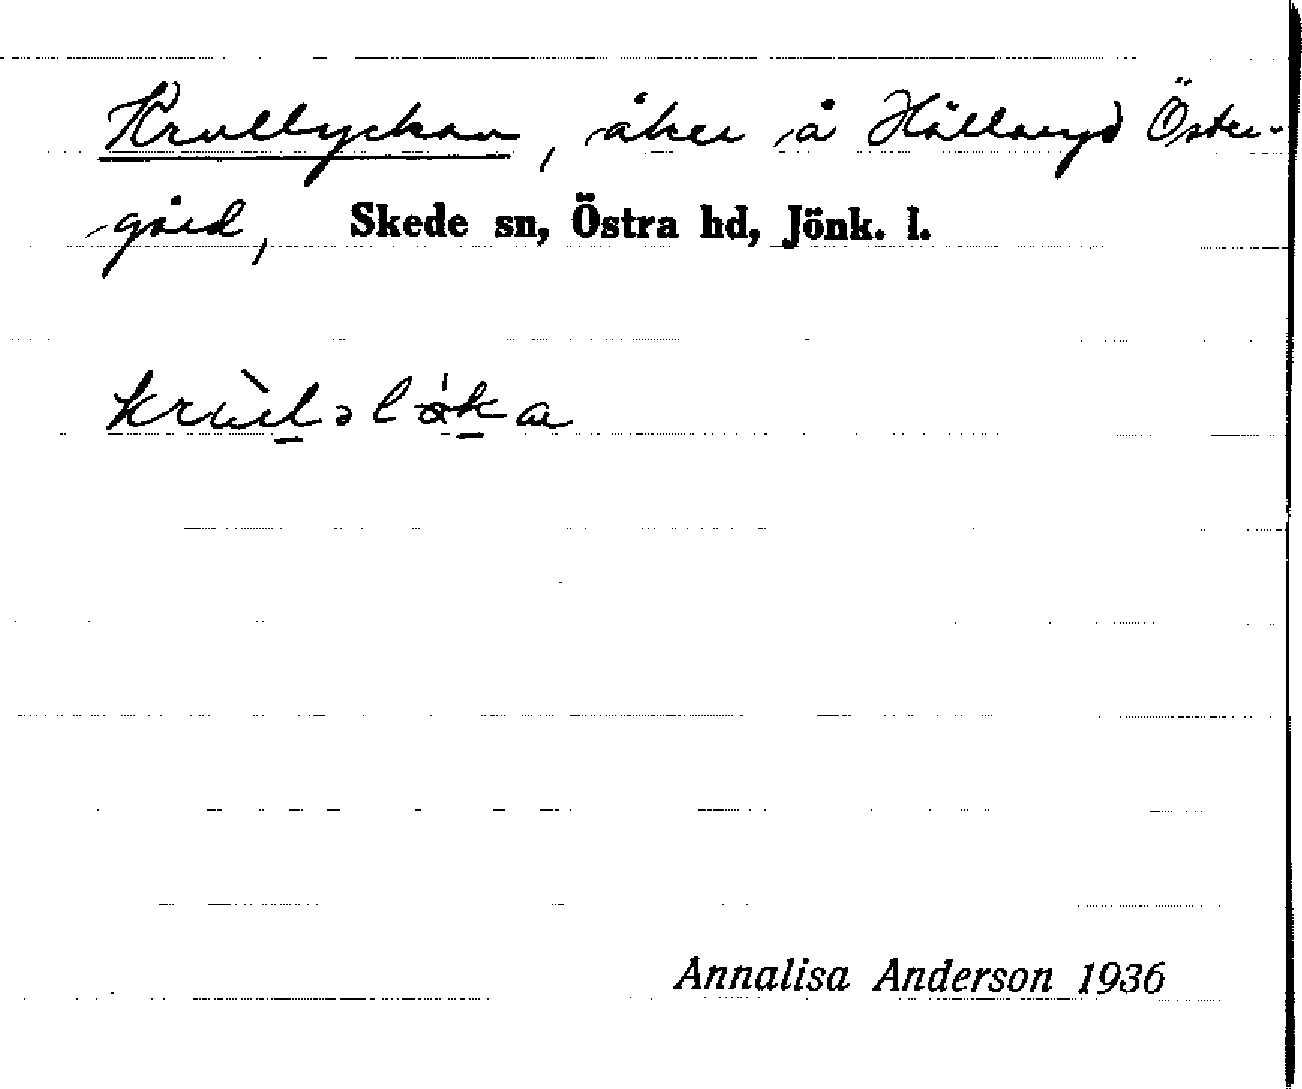 Krullyckan, åker å Hällaryd Öster-
gård, Skede sn, Östra hd, Jönk. l.
Annalisa Anderson 1936